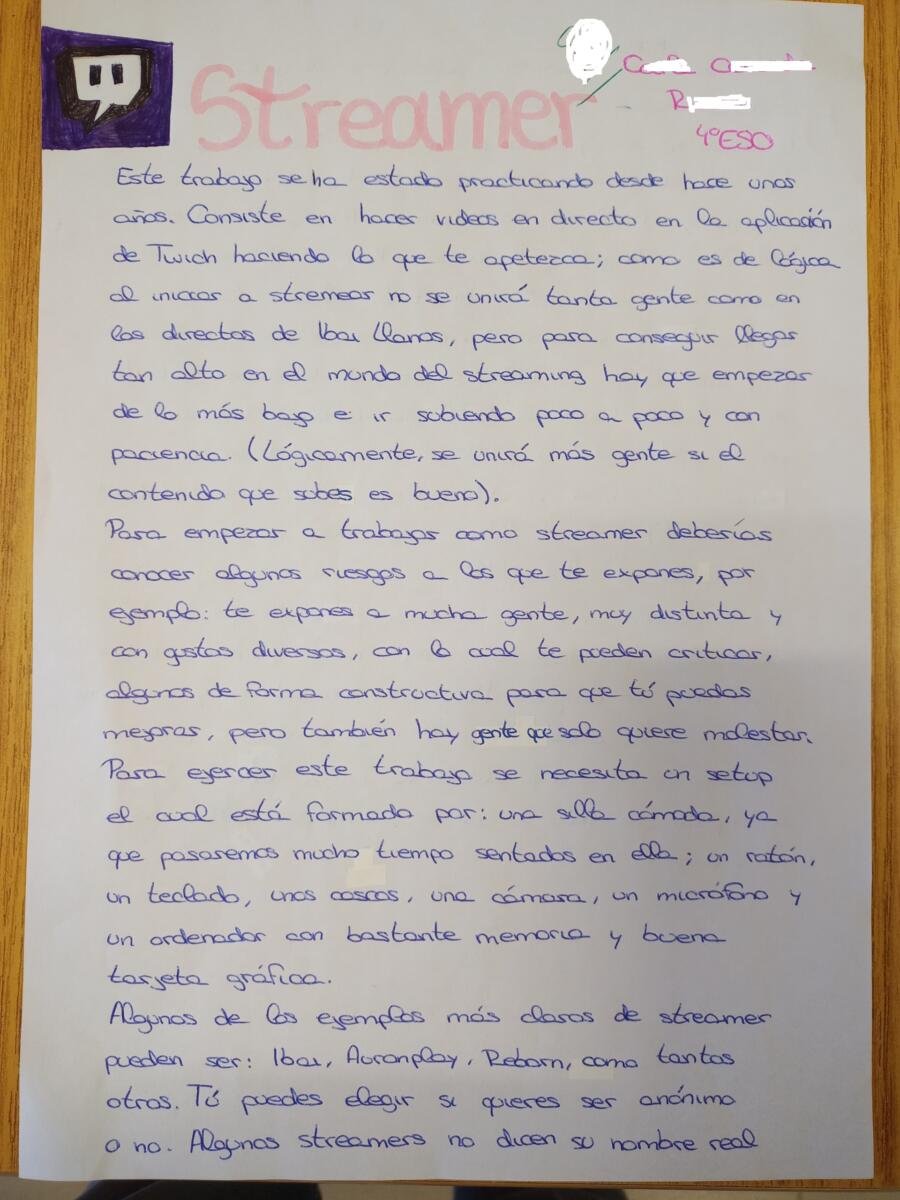 Streamer
4ºESO
Este trabajo se ha estado practicando desde hace unos
años. Consiste en hacer videos en directo en la aplicación
de Twich haciendo lo que te apetezca; como es de lógica
al iniciar a stremear no se unirá tanta gente como en
los directos de Ibai Llanos, pero para conseguir llegar
tan alto en el mundo del streaming hay que empezar
de lo más bajo e ir subiendo poco a poco y con
paciencia. (Lógicamente, se unirá más gente si el
contenido que subes es bueno).
Para empezar a trabajar como streamer deberías
conocer algunos riesgos a los que te expones, por
ejemplo: te expones a mucha gente, muy distinta y
con gustos diversos, con lo cual te pueden criticar,
algunos de forma constructiva para que tú puedas
mejorar, pero también hay gente que solo quiere molestar.
Para ejercer este trabajo se necesita un setup
el cual está formado por: una silla cómoda, ya
que pasaremos mucho tiempo sentados en ella; un ratón,
un teclado, unos cascos, una cámara, un micrófono y
un ordenador con bastante memoria y buena
tarjeta gráfica.
Algunos de los ejemplos más claros de streamer
pueden ser: Ibai, Auronplay, Reborn, como tantos
otros. Tú puedes elegir si quieres ser anónimo
o no. Algunos streamers no dicen su nombre real